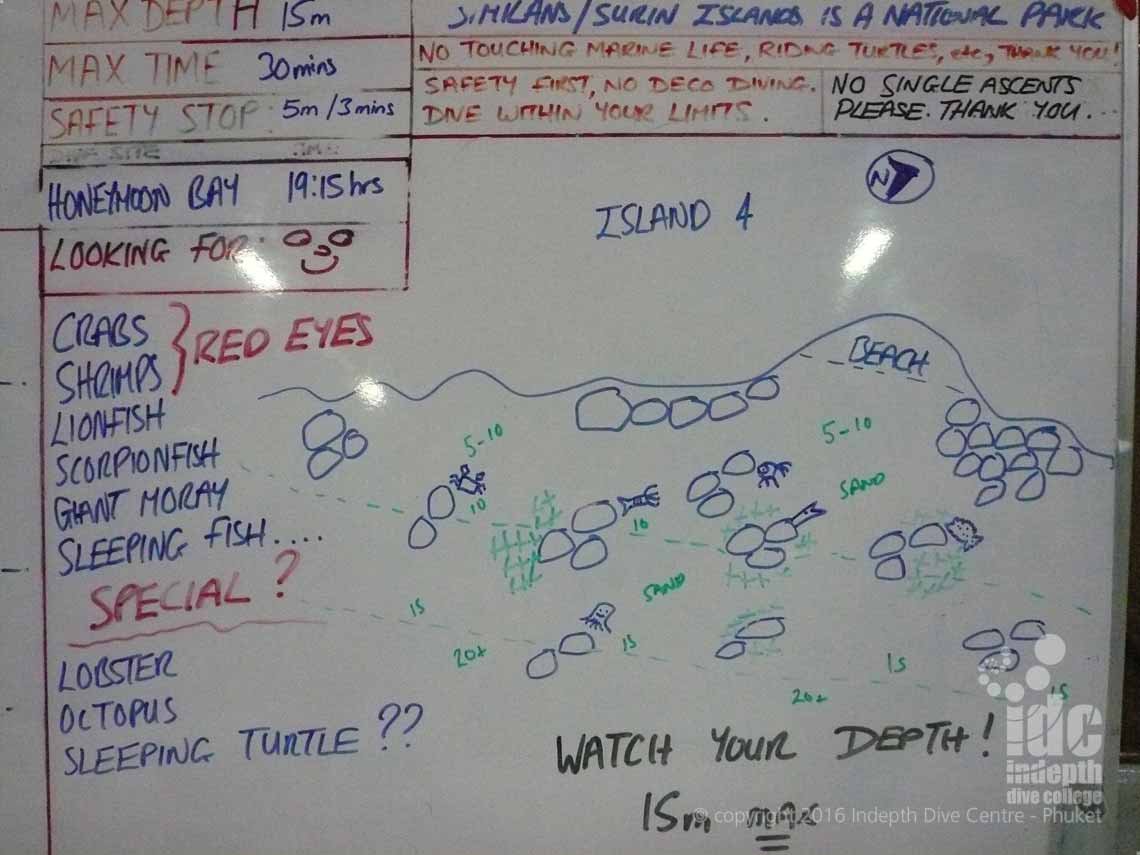 MAX DEPTH 15m
MAX TIME 30mins
SAFETY STOP: 5m/3mins
SIMILANS/SURIN ISLANDS IS A NATIONAL PARK
NO TOUCHING MARINE LIFE, RIDING TURTLES, etc, THANK YOU!
SAFETY FIRST, NO DECO DIVING.
DIVE WITHIN YOUR LIMITS.
NO SINGLE ASCENTS
PLEASE. THANK YOU...
DIVE SITE TIME
HONEYMOON BAY 19:15hrs
LOOKING FOR:
N
ISLAND 4
CRABS
SHRIMPS
RED EYES
LIONFISH
SCORPIONFISH
GIANT MORAY
SLEEPING FISH....
SPECIAL?
LOBSTER
OCTOPUS
SLEEPING TURTLE ??
BEACH
5-10
5-10
SAND
10
10
SAND
15
15
15
15
20+
20+
WATCH YOUR DEPTH!
15m MAX
idc
indepth
dive college
© copyright 2016 Indepth Dive Centre - Phuket